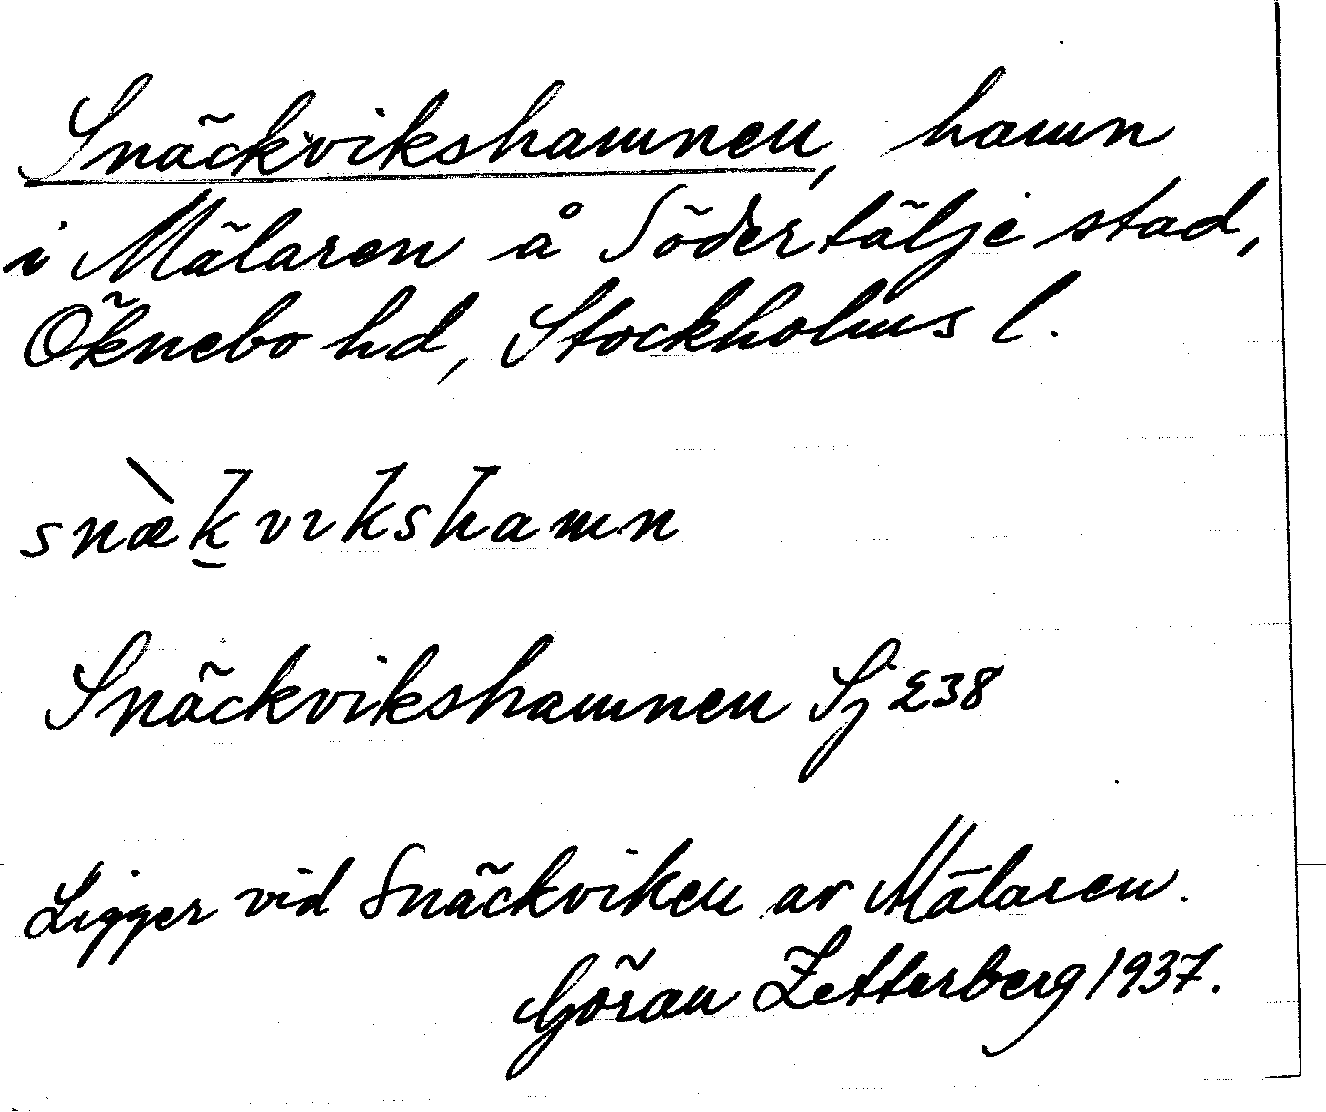 Snäckvikshamnen, hamn
i Mälaren å Södertälje stad,
Öknebo hd, Stockholms l.
snæ̀k̠vıkshamn
Snäckvikshamnen Sj 238
Ligger vid Snäckviken av Mälaren.
Göran Zetterberg 1937.